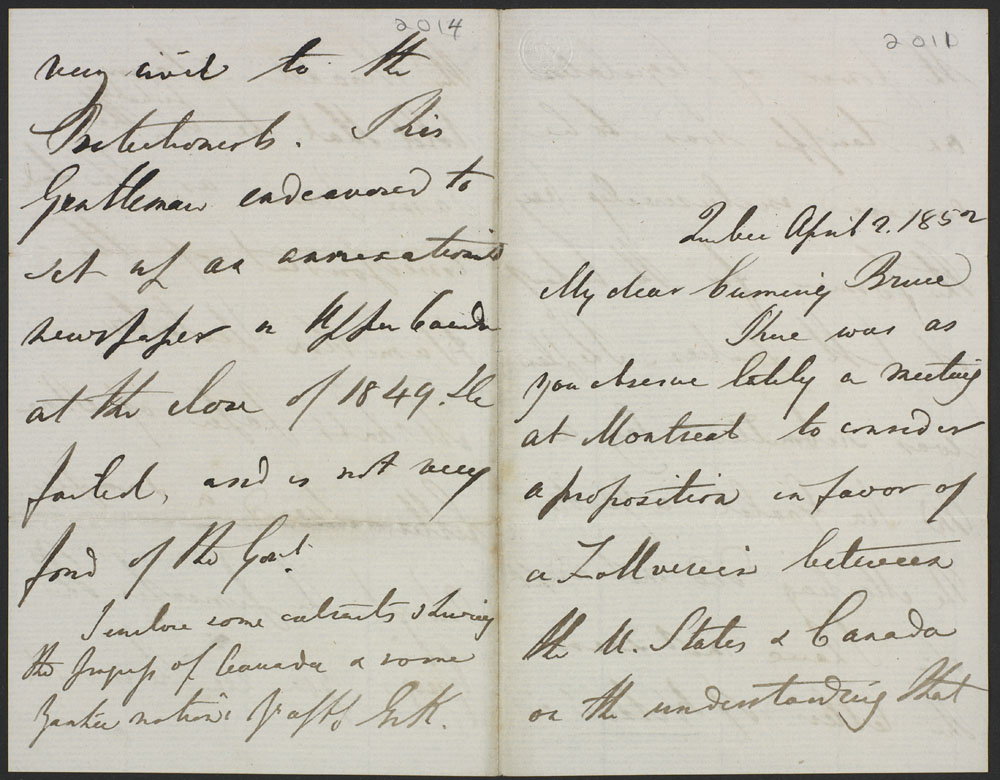 2014
very civil to the
Protectionists. This
Gentleman endeavored to
set up an annexationist
newspaper in Upper Canada
at the close of 1849. He
failed, and is not very
fond of the Govt.
I enclose some extracts shewing
the progress of Canada & some
Yankee notions
2011
Quebec April 2. 1852
My dear Cumming Bruce
There was as
you observe lately a meeting
at Montreal to consider
a proposition in favor of
a Zollverein between
the U. States & Canada
on the understanding that